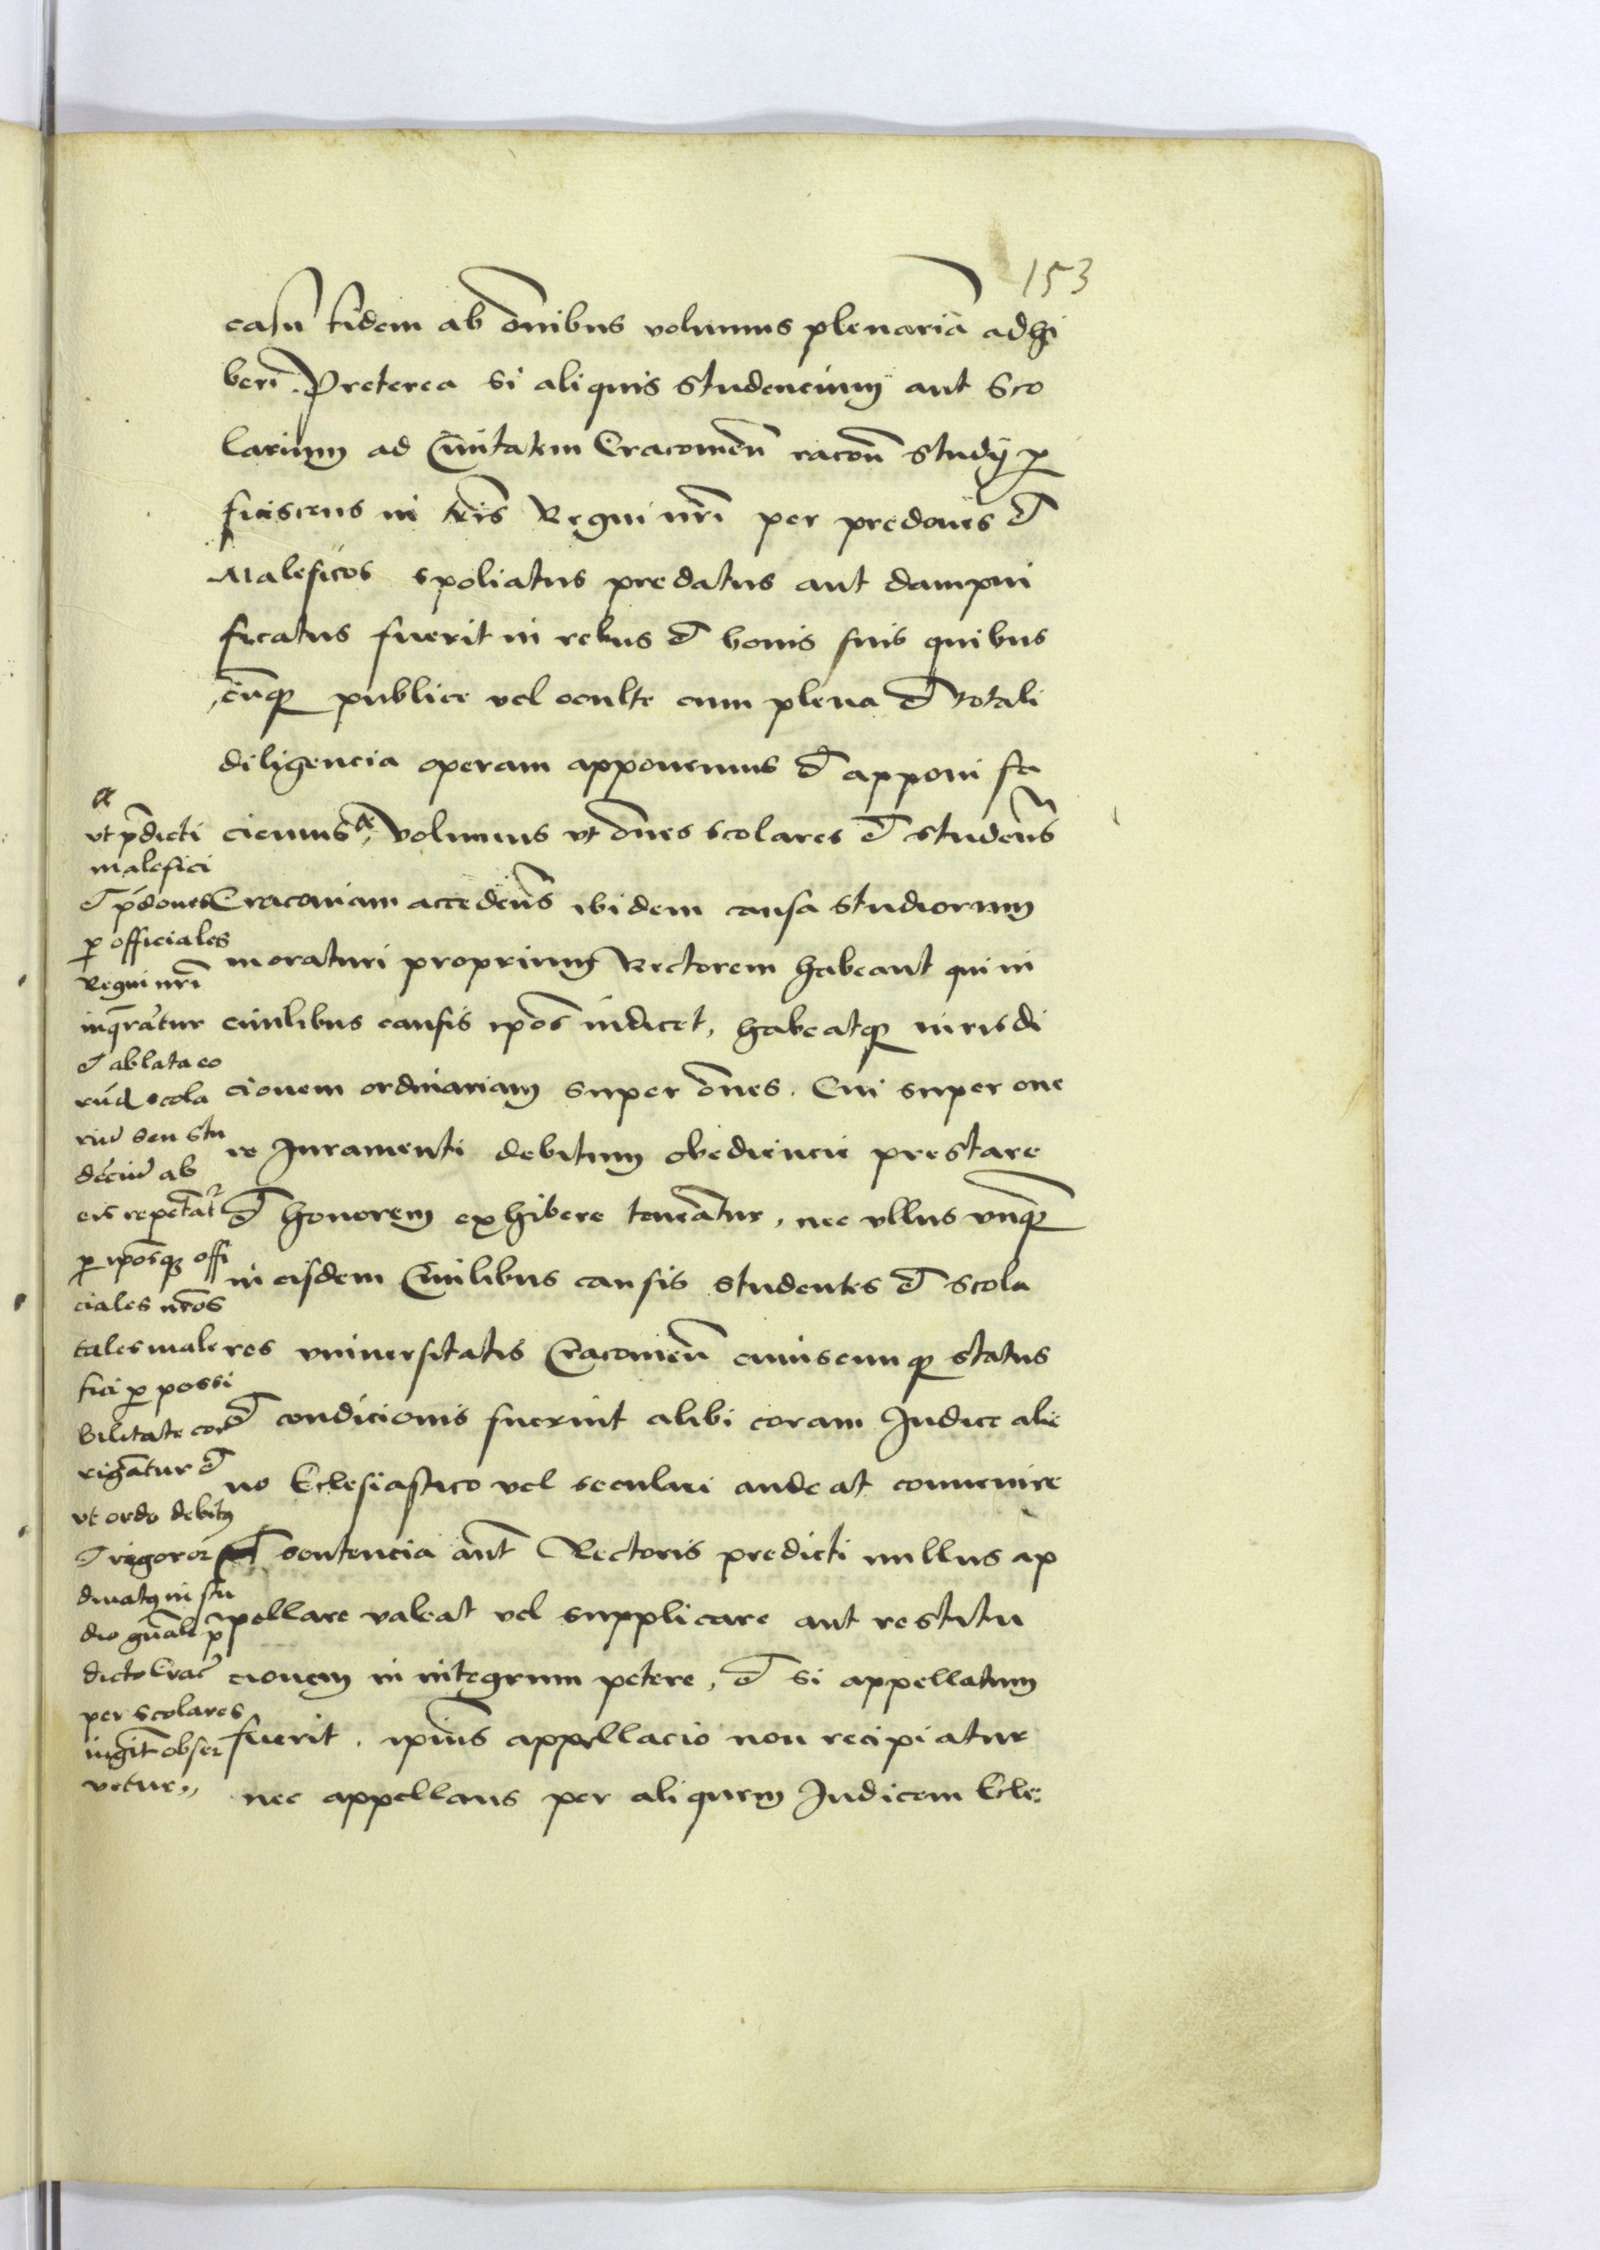 153
casu fidem ab om̄nibus volumus plenariā adhi
beri. Preterea si aliquis studencium aut Sco
larium ad Ciuitatem Cracouien̄ racōn studij ꝓ
ficiscens in tr̄is Regni nr̄i per predones et
Maleficos spoliatus predatus aut dampni
ficatus fuerit in rebus et bonis suis quibus
cūqꝫ publice vel oculte cum plena et totali
diligencia operam apponemus et apponi fa
ciemus, Volumus vt om̄es scolares et studen̄s
Cracouiam acceden̄s ibidem causa studiorum
moraturi proprium Rectorem habeant qui in
ciuilibus causis ip̄os iudicet, habeatqꝫ iurisdi
cionem ordinariam super om̄es. Cui super one
re Juramenti debitum obediencie prestare
et honorem exhibere teneātur, nec vllus vnqꝫ
in eisdem Ciuilibus causis studentes et scola
res vniuersitatis Cracouien̄ cuiuscunqꝫ status
et condicionis fuerint alibi coram Judice alie
no Eclesiastico vel seculari audeat conuenire
A sentencia aūt Rectoris predicti nullus ap
pellare valeat vel supplicare aut restitu
cionem in integrum petere, et si appellatum
fuerit, ip̄ius appellacio non recipiatur
nec appellans per aliquem Judicem Ecle:
vt p̄dicti
malefici
et p̄dones
ꝑ officiales
Regni nr̄i
inq̄rātur
et ablata eo
rūd scola
riū seu stu
denciū ab
eis repetāt᷑
ꝑ ip̄osqꝫ offi
ciales nr̄os
tales male
fici ꝓ possi
bilitate cor
rigātur et
vt ordo debitꝰ
et rigor or
dinatꝰ in stu
dio gn̄ali p̄
dicto Crac̄
per scolares
iugit̄ obser
vetur,,